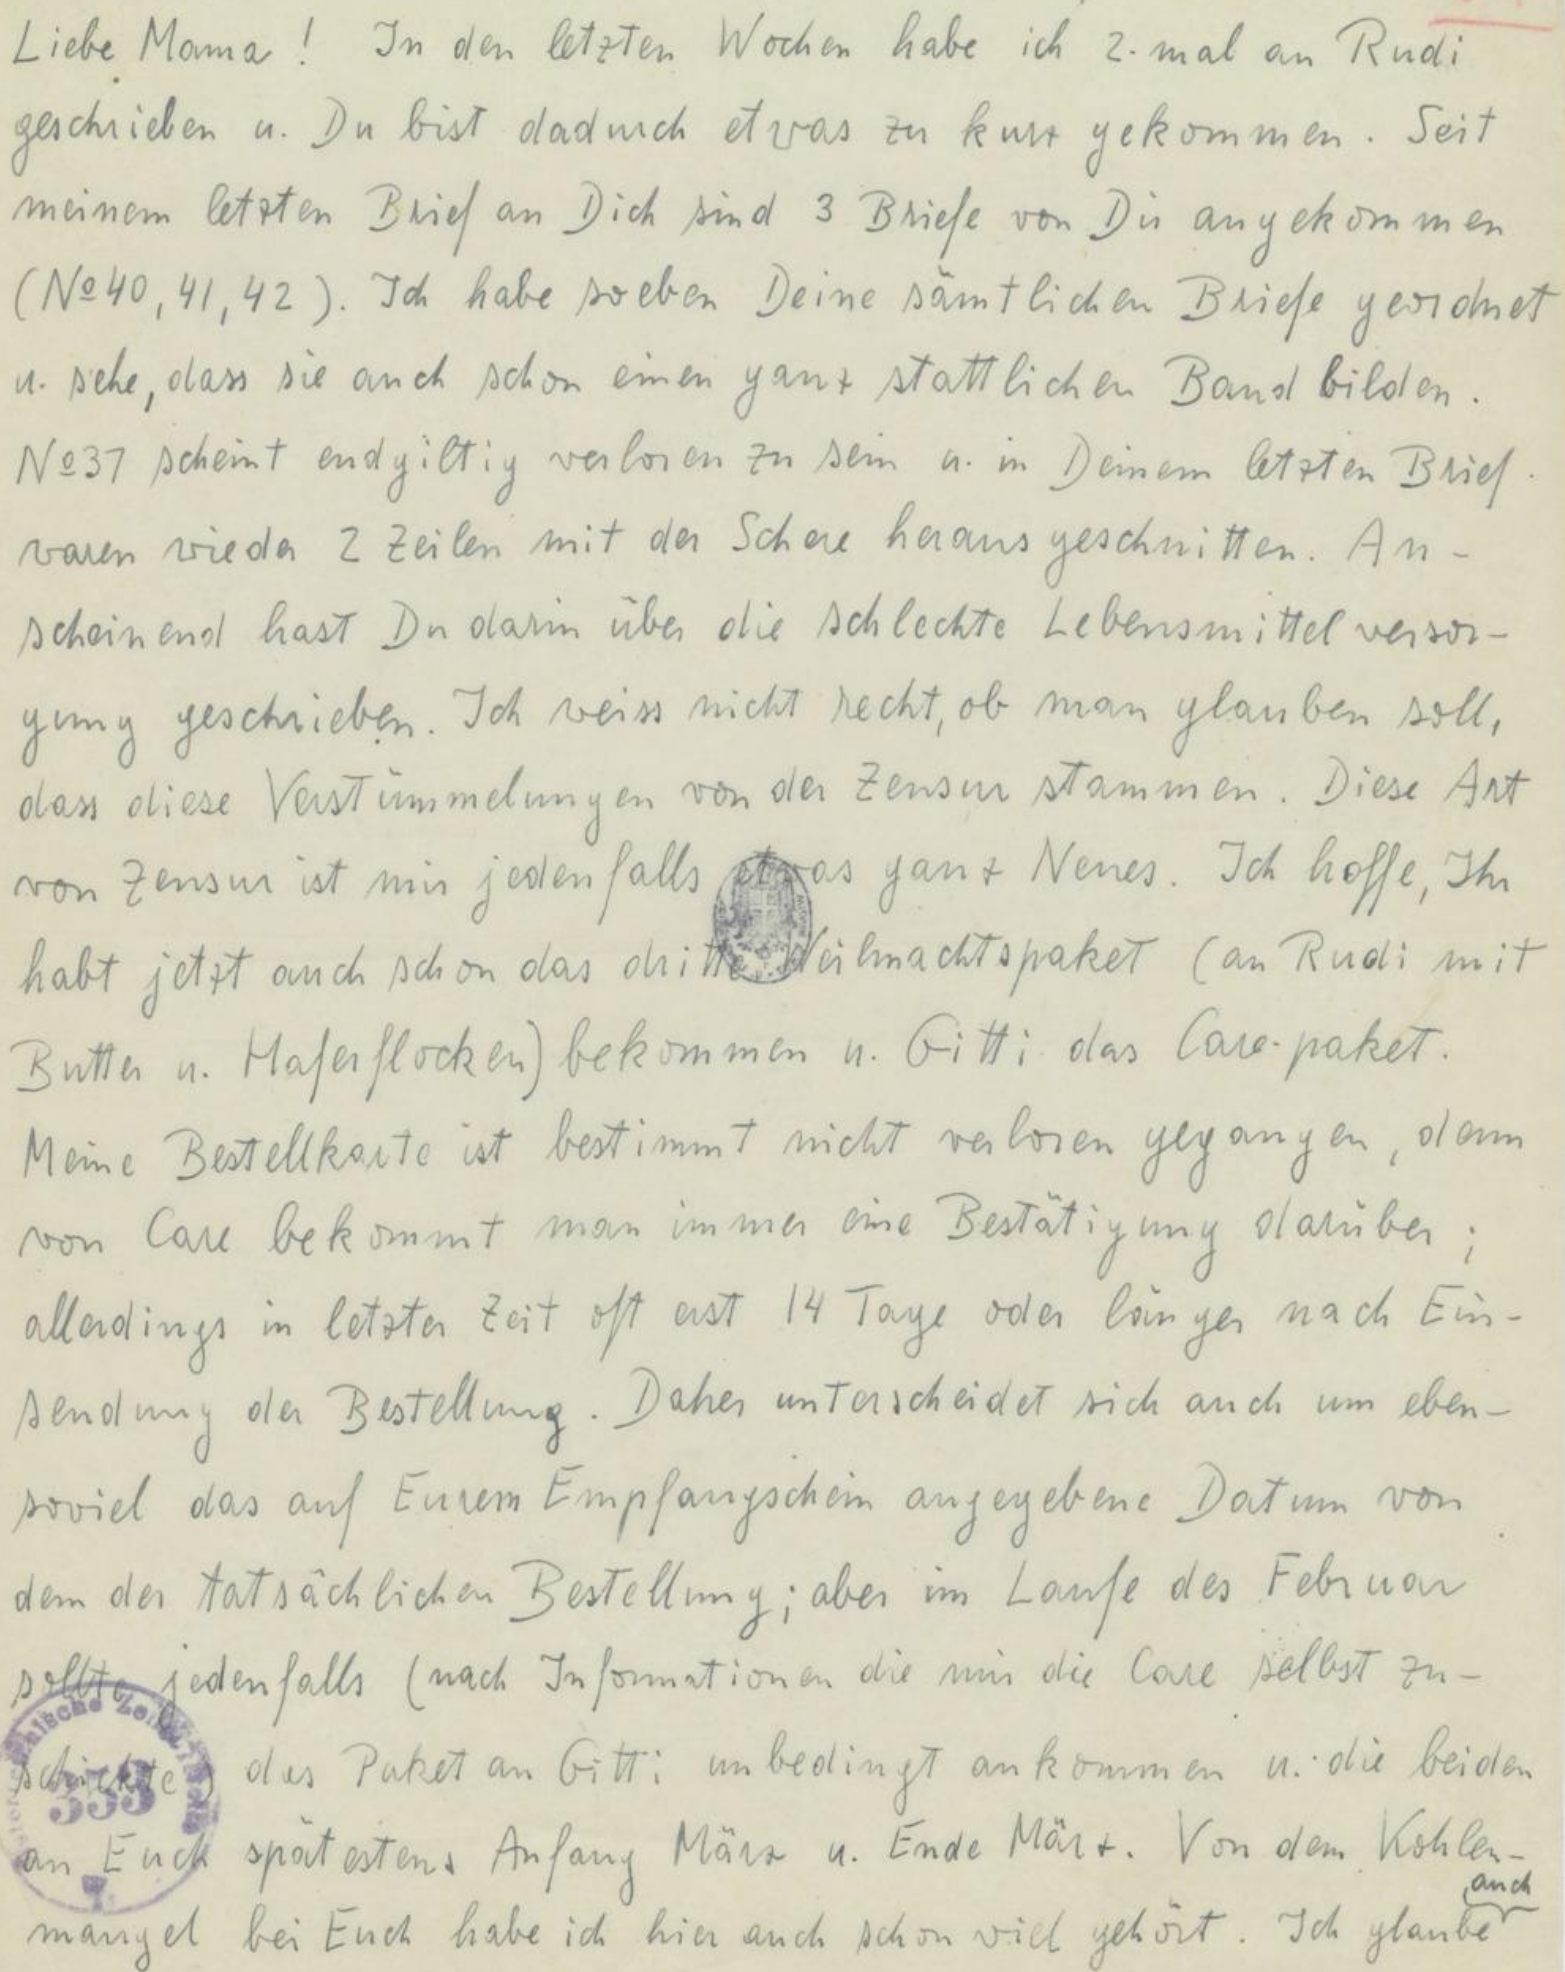 Liebe Mama! In den letzten Wochen habe ich 2.mal an Rudi
geschrieben u. Du bist dadurch etwas zu kurz gekommen. Seit
meinem letzten Brief an Dich sind 3 Briefe von Dir angekommen
(No 40, 41, 42). Ich habe soeben Deine sämtlichen Briefe geordnet
u. sehe, dass sie auch schon einen ganz stattlichen Band bilden.
No 37 scheint endgiltig verloren zu sein u. in Deinem letzten Brief
waren wieder 2 Zeilen mit der Schere herausgeschnitten. An-
scheinend hast Du darin über die schlechte Lebensmittelversor-
gung geschrieben. Ich weiss nicht recht, ob man glauben soll,
dass diese Verstümmelungen von der Zensur stammen. Diese Art
von Zensur ist mir jedenfalls etwas ganz Neues. Ich hoffe, Ihr
habt jetzt auch schon das dritte Weihnachtspaket (an Rudi mit
Butter u. Haferflocken) bekommen u. Gitti das Care-paket.
Meine Bestellkarte ist bestimmt nicht verloren gegangen, denn
von Care bekommt man immer eine Bestätigung darüber;
allerdings in letzter Zeit oft erst 14 Tage oder länger nach Ein-
sendung der Bestellung. Daher unterscheidet sich auch um eben-
soviel das auf Eurem Empfangschein angegebene Datum von
dem der tatsächlichen Bestellung; aber im Laufe des Februar
sollte jedenfalls (nach Informationen die mir die Care selbst zu-
schickte) das Paket an Gitti unbedingt ankommen u. die beiden
333
an Euch spätestens Anfang März u. Ende März. Von dem Kohlen-
auch
mangel bei Euch habe ich hier auch schon viel gehört. Ich glaube